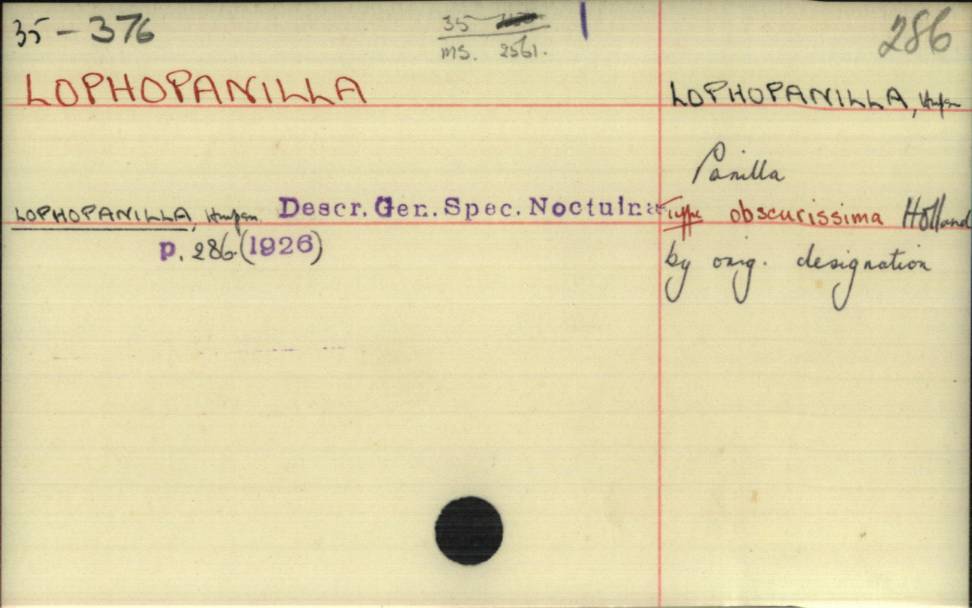 35 - 376
35
ms. 2561.
286
LOPHOPANILLA
LOPHOPANILLA, Hmpsn
Panilla
LOPHOPANILLA, Hmpsn. Descr. Gen. Spec. Noctuinae
p. 286. (1926)
Type obscurissima Holland
by orig. designation